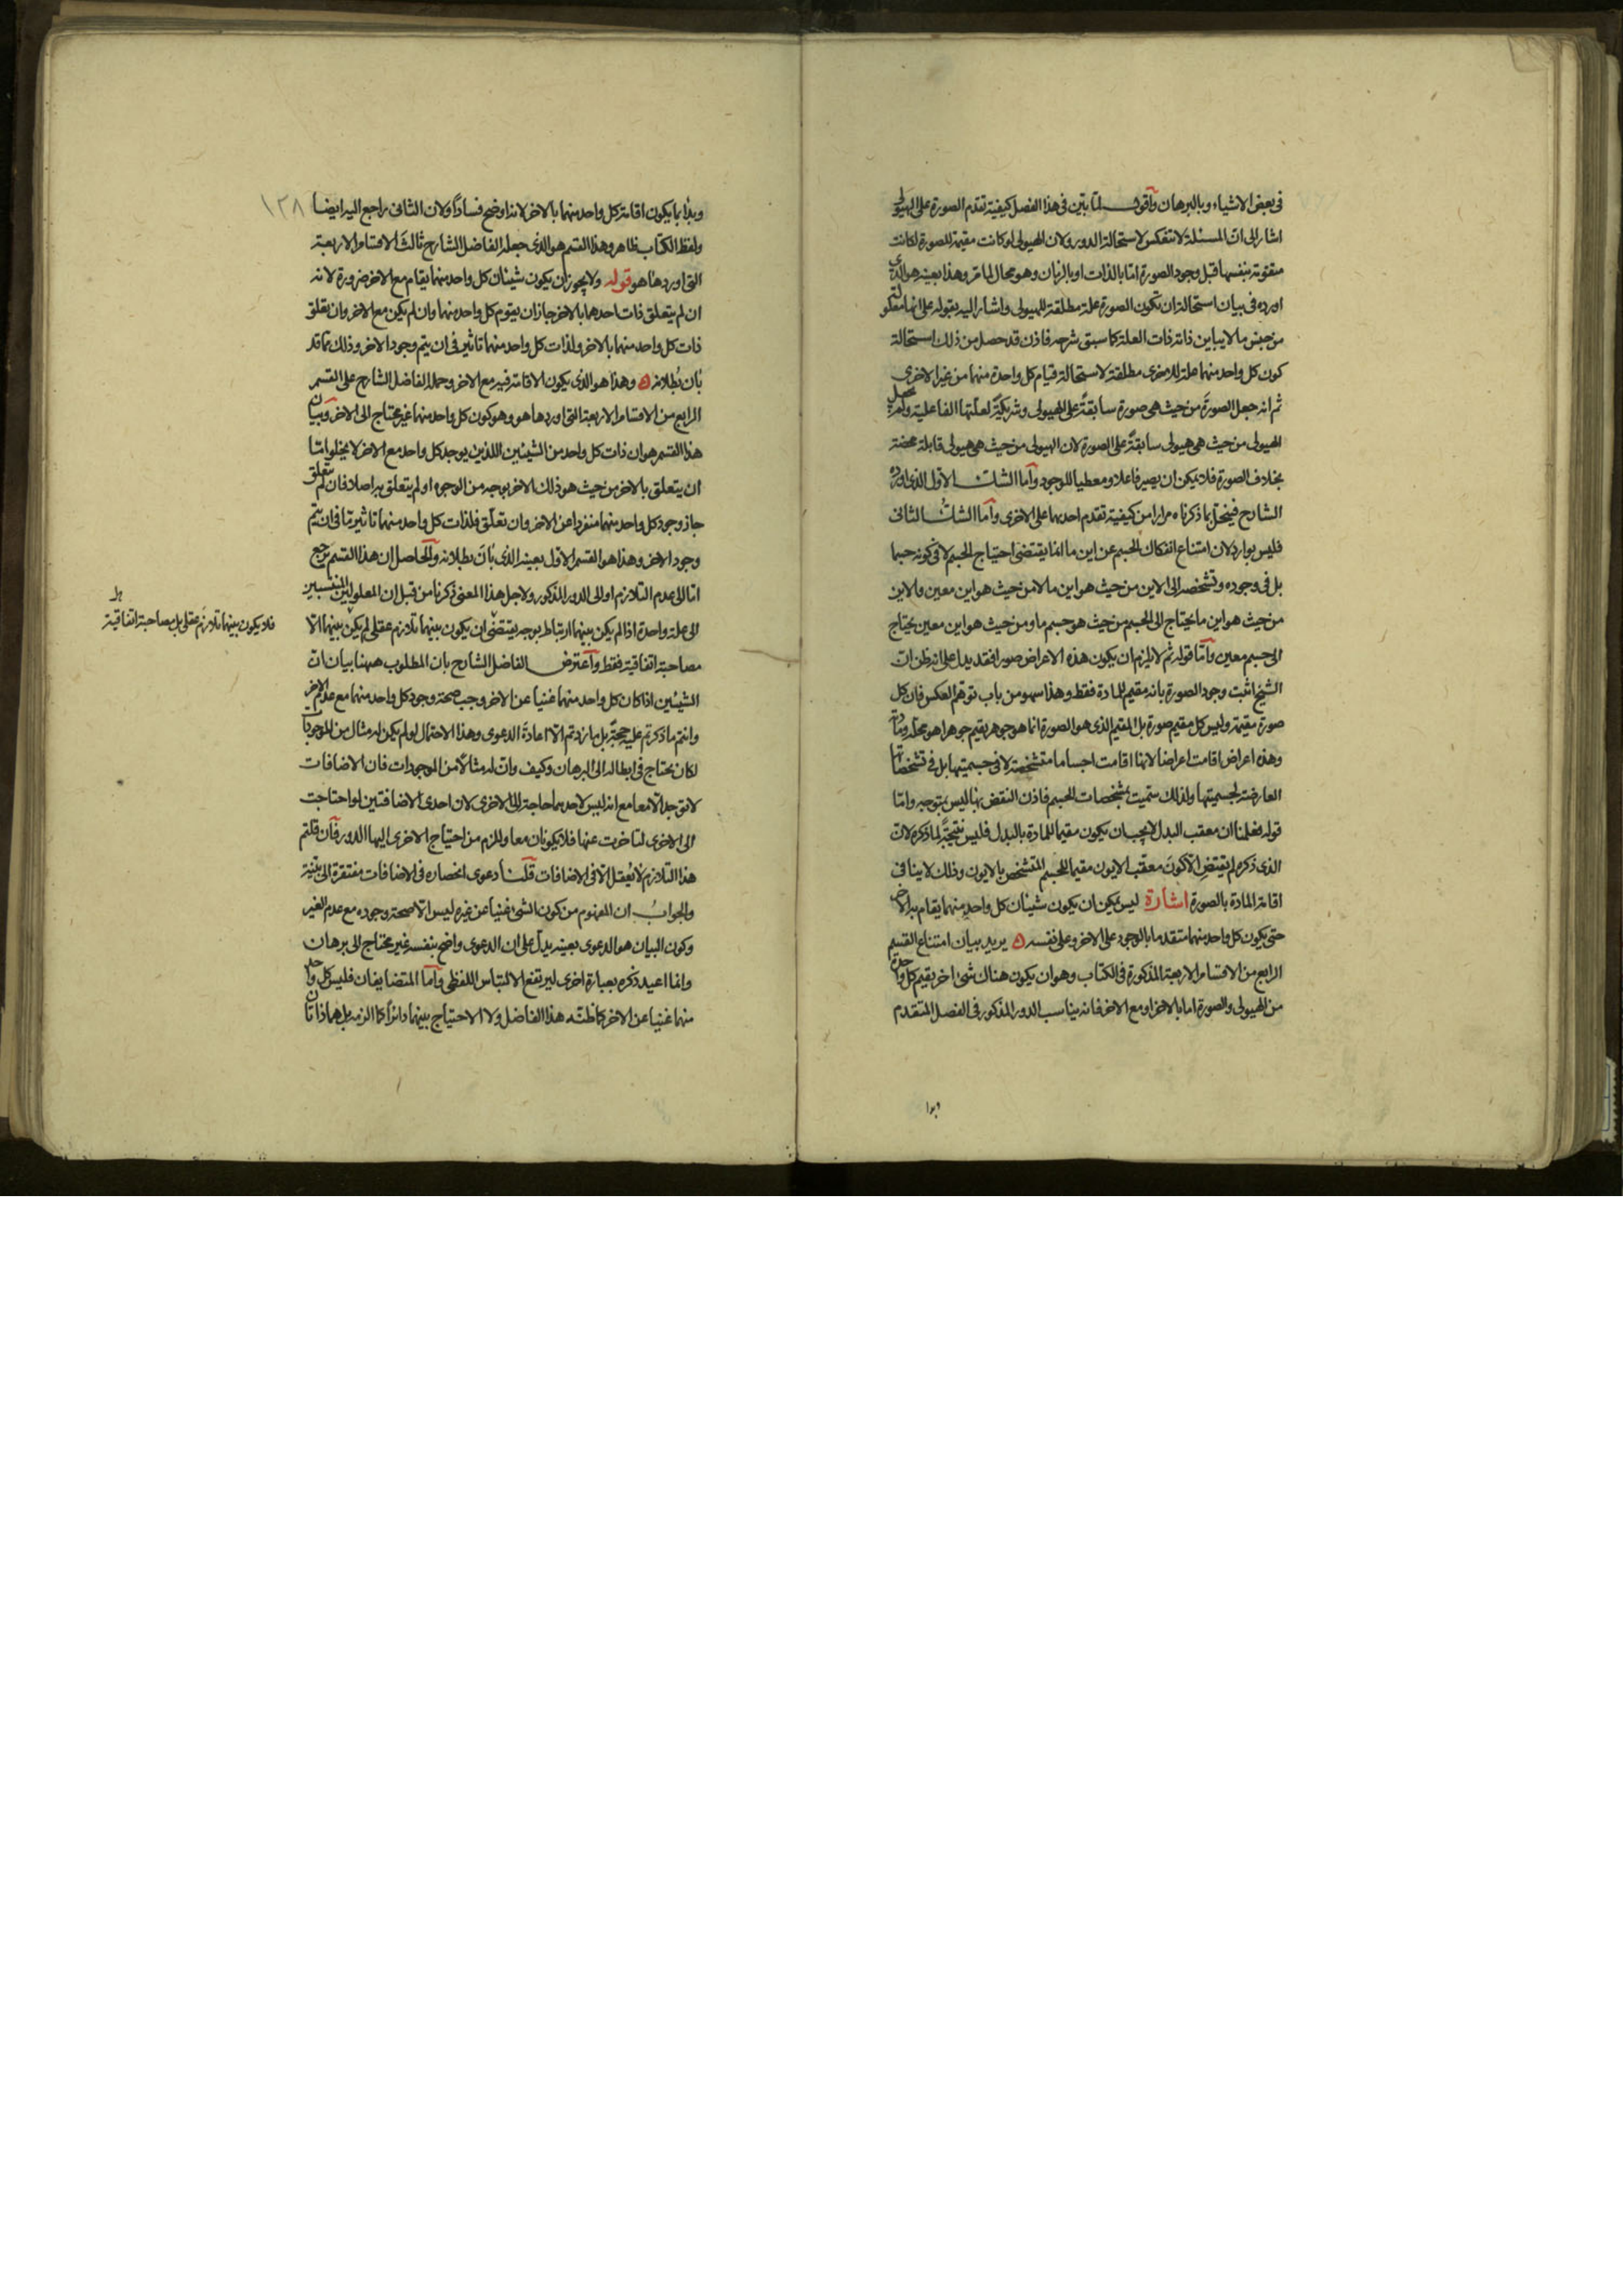 في بعض الاشياء وبالبرهان وأقول لما تبين في هذا الفصل كيفية تقدم الصورة على الهيولى
اشار الى ان المسئلة لا تنعكس لاستحالة الدور ولان الهيولى لو كانت مقيمة للصورة لكانت
متقومة بنفسها قبل وجود الصورة اما بالذات او بالزمان وهو محال لما مر وهذا بعينه هو الذي
اورده في بيان استحالة ان تكون الصورة علة مطلقة للهيولى واشار اليه بقوله على انها معلولة
من جنس ما لا يباين ذاته ذات العلة كما سبق شرحه فاذن قد حصل من ذلك استحالة
كون كل واحد منهما علة للاخرى مطلقة لاستحالة قيام كل واحدة منهما من غير الاخرى
ثم انه جعل الصورة من حيث هي صورة سابقة على الهيولى وشريكة لعلتها الفاعلية ولم يجعل
الهيولى من حيث هي هيولى سابقة على الصورة لان الهيولى من حيث هي هيولى قابلة محضة
بخلاف الصورة فلا يمكن ان يصير فاعلا ومعطيا للوجود وأما الشك الاول الذي اورده
الشارح فينحل بما ذكرناه مرارا من كيفية تقدم احديهما على الاخرى وأما الشك الثاني
فليس بوارد لان امتناع انفكاك الجسم عن اين ما انما يقتضي احتياج الجسم لا في كونه جسما
بل في وجوده وتشخصه الى الاين من حيث هو اين ما لا من حيث هو اين معين والاين
من حيث هو اين ما يحتاج الى الجسم من حيث هو جسم ما ومن حيث هو اين معين يحتاج
الى جسم معين وأما قوله ثم لا يلزم ان يكون هذه الاعراض صورا فقد يدل على انه ظن ان
الشيخ اثبت وجود الصورة بانه مقيم للمادة فقط وهذا سهو من باب توهم العكس فان كل
صورة مقيمة وليس كل مقيم صورة بل المقيم الذي هو الصورة انما هو جوهر يقيم جوهرا هو محله ومادته
وهذه اعراض اقامت اعراضا لانها اقامت اجساما متشخصة لا في جسميتها بل في تشخصاتها
العارضة لجسميتها ولذلك سميت بمشخصات الجسم فاذن النقض بها ليس بمتوجه وأما
قوله فعلمنا ان معقب البدل لا يجب ان يكون مقيما للمادة بالبدل فليس نتيجة لما ذكره لان
الذي ذكره لم يقتض الا كون معقب الايون مقيما للجسم المتشخص بالايون وذلك لا ينافي
اقامة المادة بالصورة اشارة ليس يمكن ان يكون شيئان كل واحد منهما يقام به الاخر
حتى يكون كل واحد منهما متقدما بالوجود على الاخر وعلى نفسه ه يريد بيان امتناع القسم
الرابع من الاقسام الاربعة المذكورة في الكتاب وهو ان يكون هناك شئ اخر يقيم كل واحدة
من الهيولى والصورة اما بالاخر او مع الاخر فانه يناسب الدور المذكور في الفصل المتقدم
وبدا
١٢٨
وبدأ بما يكون اقامة كل واحد منهما بالاخر لانه اوضح فسادا ولان الثاني راجع اليه ايضا
ولفظ الكتاب ظاهر وهذا القسم هو الذي جعله الفاضل الشارح ثالث الاقسام الاربعة
التي اوردها هو قوله ولا يجوز ان يكون شيئان كل واحد منهما يقام مع الاخر ضرورة لانه
ان لم يتعلق ذات احدهما بالاخر جاز ان يقوم كل واحد منهما وان لم يكن مع الاخر وان تعلق
ذات كل واحد منهما بالاخر ولذات كل واحد منهما تاثير في ان يتم وجود الاخر وذلك مما قد
بان بطلانه ه وهذا هو الذي يكون الاقامة فيه مع الاخر وحمله الفاضل الشارح على القسم
الرابع من الاقسام الاربعة التي اوردها هو وهو كون كل واحد منهما غير محتاج الى الاخر وبيان
هذا القسم هو ان ذات كل واحد من الشيئين اللذين يوجد كل واحد مع الاخر لا يخلو اما
ان يتعلق بالاخر من حيث هو ذلك الاخر بوجه من الوجوه او لم يتعلق به اصلا فان لم يتعلق
جاز وجود كل واحد منهما منفردا عن الاخر وان تعلق فلذات كل واحد منهما تاثير ما في ان يتم
وجود الاخر وهذا هو القسم الاول بعينه الذي بان بطلانه والحاصل ان هذا القسم يرجع
اما الى عدم التلازم او الى الدور المذكور ولاجل هذا المعنى ذكرنا من قبل ان المعلولين المنتسبين
الى علة واحدة اذا لم يكن بينهما ارتباط بوجه يقتضي ان يكون بينهما تلازم عقلي لم يكن بينهما الا
فلا يكون بينهما تلازم عقلي بل مصاحبة اتفاقية
مصاحبة اتفاقية فقط وأعترض الفاضل الشارح بان المطلوب ههنا بيان ان
الشيئين اذا كان كل واحد منهما غنيا عن الاخر وجب صحة وجود كل واحد منهما مع عدم الاخر
وانتم ما ذكرتم عليه حجة بل ما زدتم الا اعادة الدعوى وهذا الاحتمال لو لم يكن له مثال من الموجودات
لكان يحتاج في ابطاله الى البرهان وكيف وان له مثالا من الموجودات فان الاضافات
لا توجد الا معا مع انه ليس لاحديهما حاجة الى الاخرى لان احدى الاضافتين لو احتاجت
الى الاخرى لتاخرت عنها فلا يكونان معا وللزم من احتياج الاخرى اليها الدور فان قلتم
هذا التلازم لا يعقل الا في الاضافات قلنا دعوى انحصاره في الاضافات مفتقرة الى بينة
والجواب ان المفهوم من كون الشئ غنيا عن غيره ليس الا صحة وجوده مع عدم الغير
وكون البيان هو الدعوى بعينه يدل على ان الدعوى واضح بنفسه غير محتاج الى برهان
وانما اعيد ذكره بعبارة اخرى ليرتفع الالتباس اللفظي وأما المتضايفان فليس كل واحد
منهما غنيا عن الاخر كما ظنه هذا الفاضل ولا الاحتياج بينهما دائرا كما الزمه بل هما ذاتان